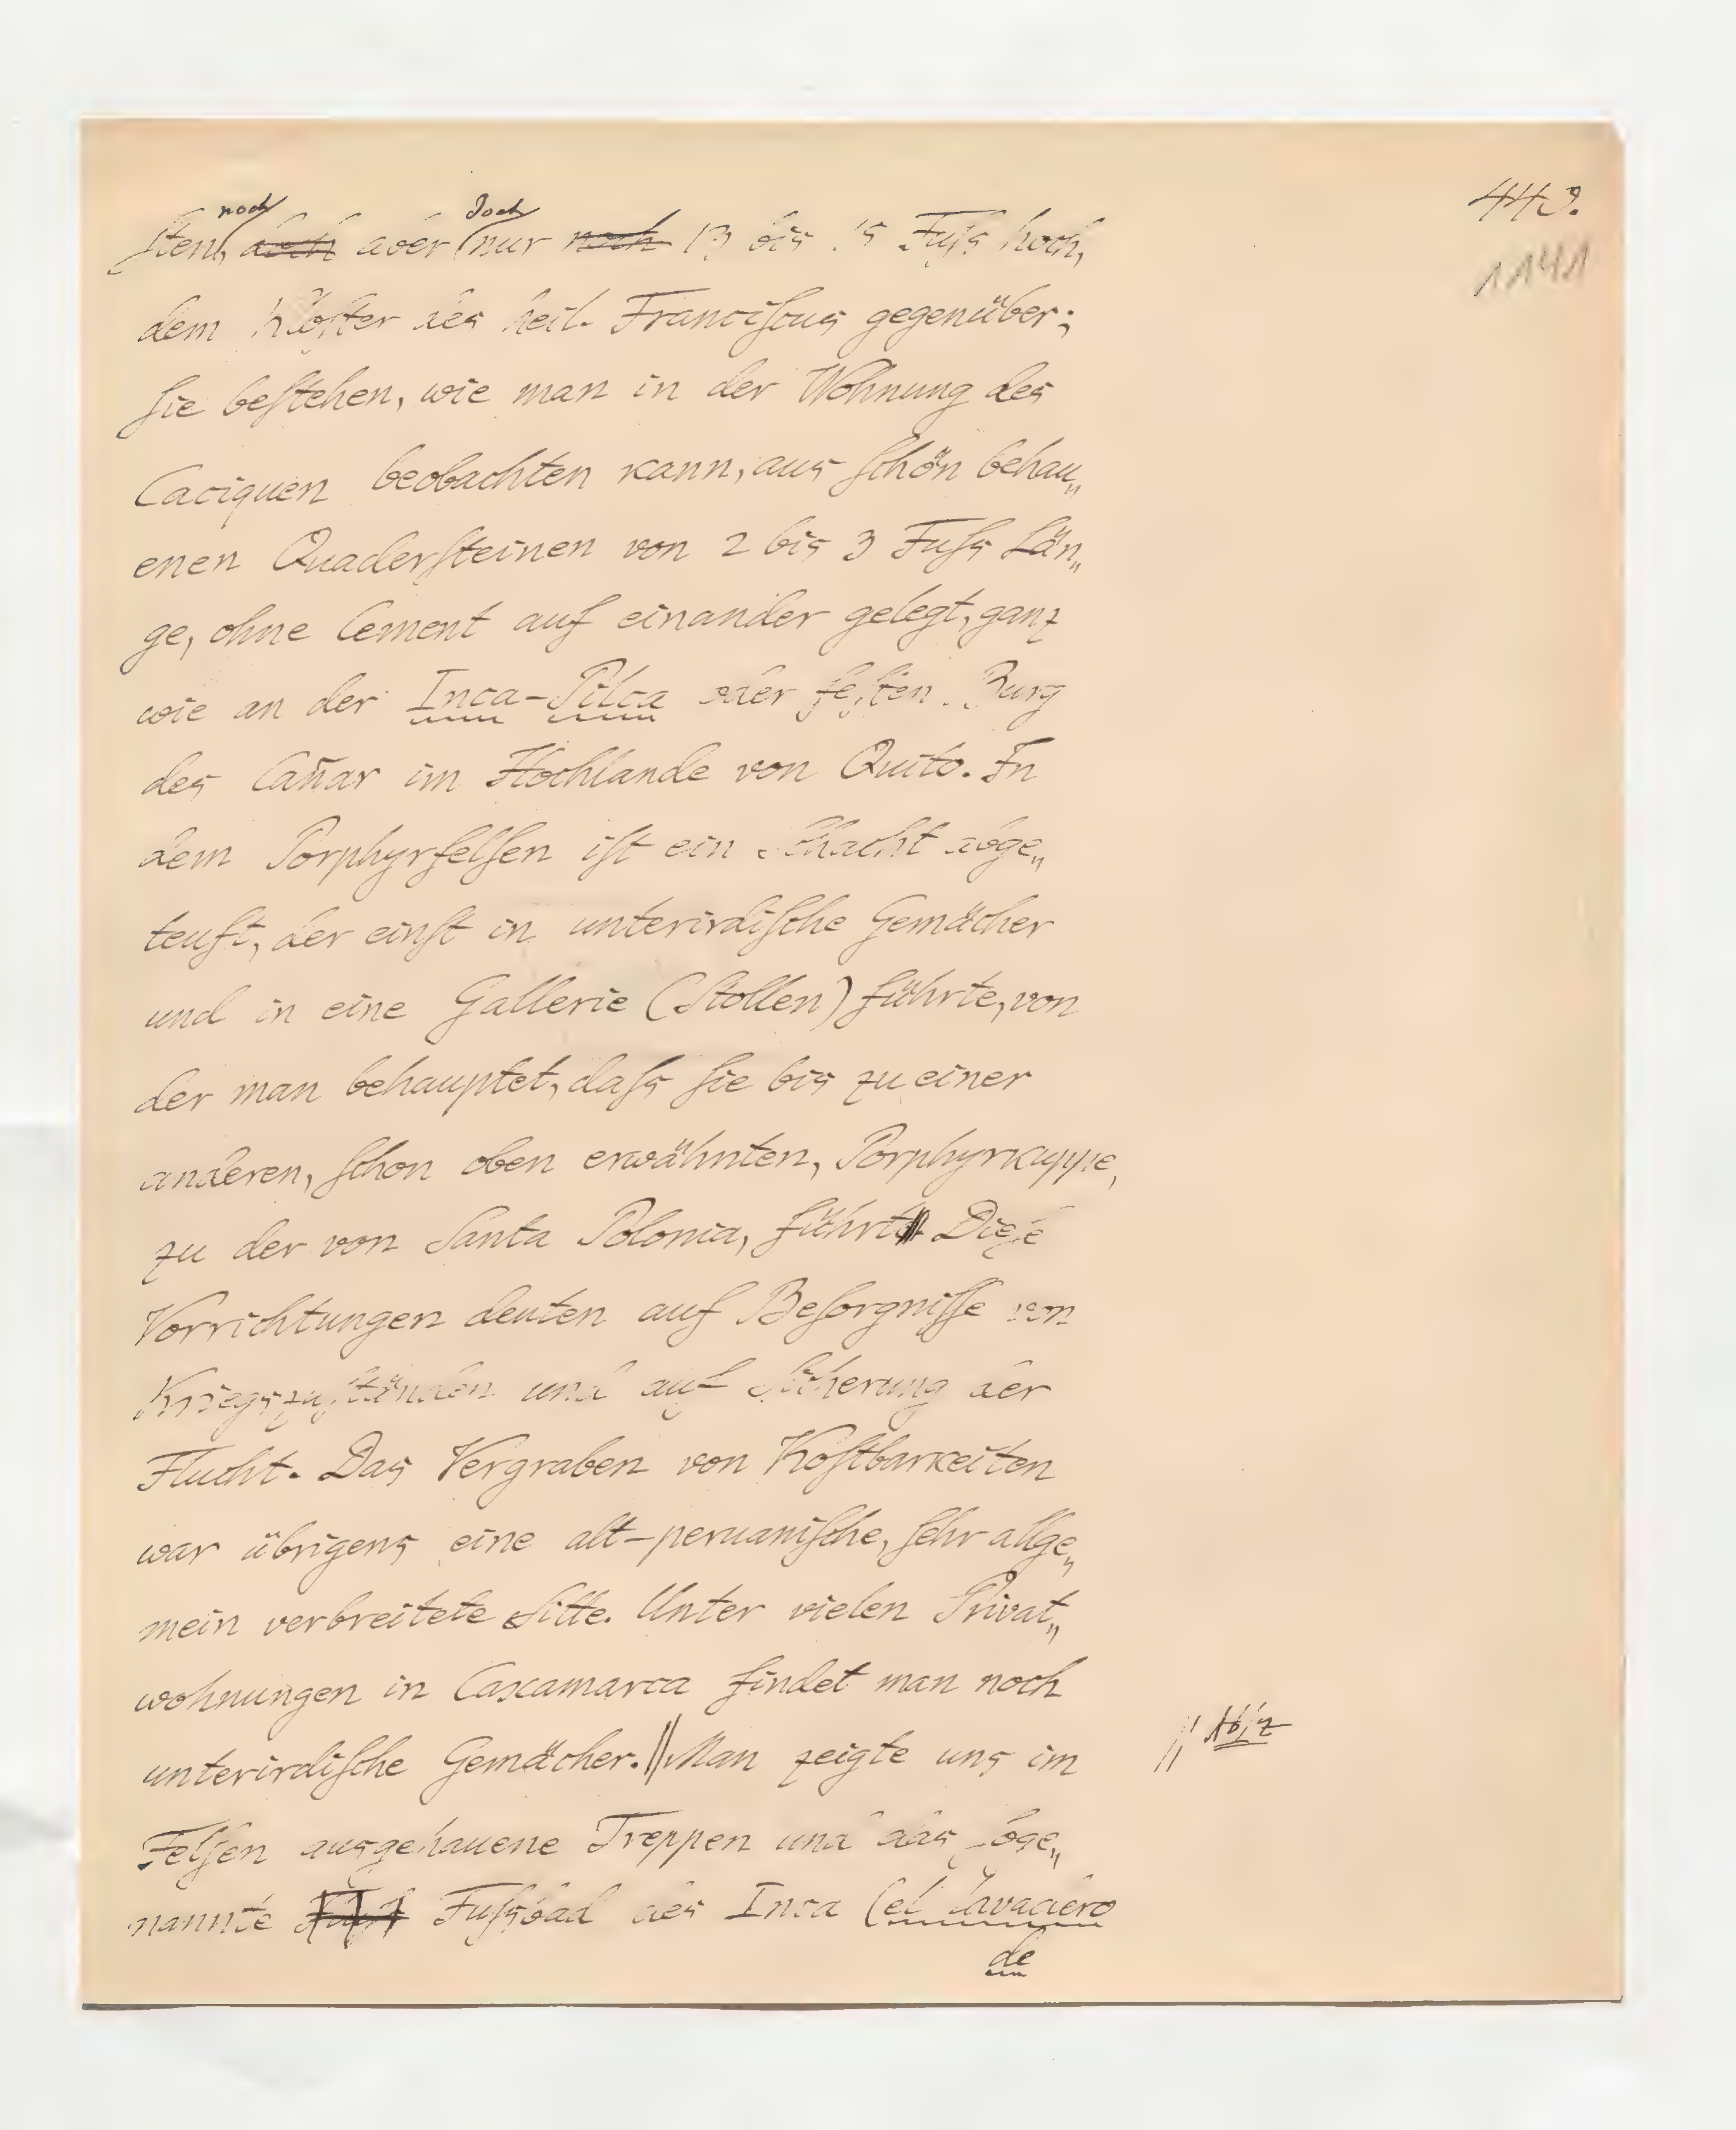 443.
1141
ſten, noch ~~doch~~ aber doch nur ~~noch~~ 13 bis 15 Fuſs hoch,
dem Kloſter des heil. Franciſcus gegenüber;
ſie beſtehen, wie man in der Wohnung des
Caciquen beobachten kann, aus ſchön behau„
enen Quaderſteinen von 2 bis 3 Fuſs Län„
ge, ohne Cement auf einander gelegt, ganz
wie an der Inca-Pilca oder feſten Burg
des Cañar im Hochlande von Quito. In
dem Porphyrfelſen iſt ein Schacht abge„
teuft, der einſt in unterirdiſche Gemächer
und in eine Gallerie (Stollen) führte, von
der man behauptet, daſs ſie bis zu einer
anderen, ſchon oben erwähnten, Porphyrkuppe,
zu der von Santa Polonia, führt. Dieſe
Vorrichtungen deuten auf Beſorgniſſe von
Kriegszuſtänden und auf Sicherung der
Flucht. Das Vergraben von Koſtbarkeiten
war übrigens eine alt-peruaniſche, ſehr allge„
mein verbreitete Sitte. Unter vielen Privat„
wohnungen in Caxamarca findet man noch
unterirdiſche Gemächer. || Man zeigte uns im
|| Abſz
Felſen ausgehauene Treppen und das ſoge„
nannte Fuſsbad des Inca (el lavadero
de